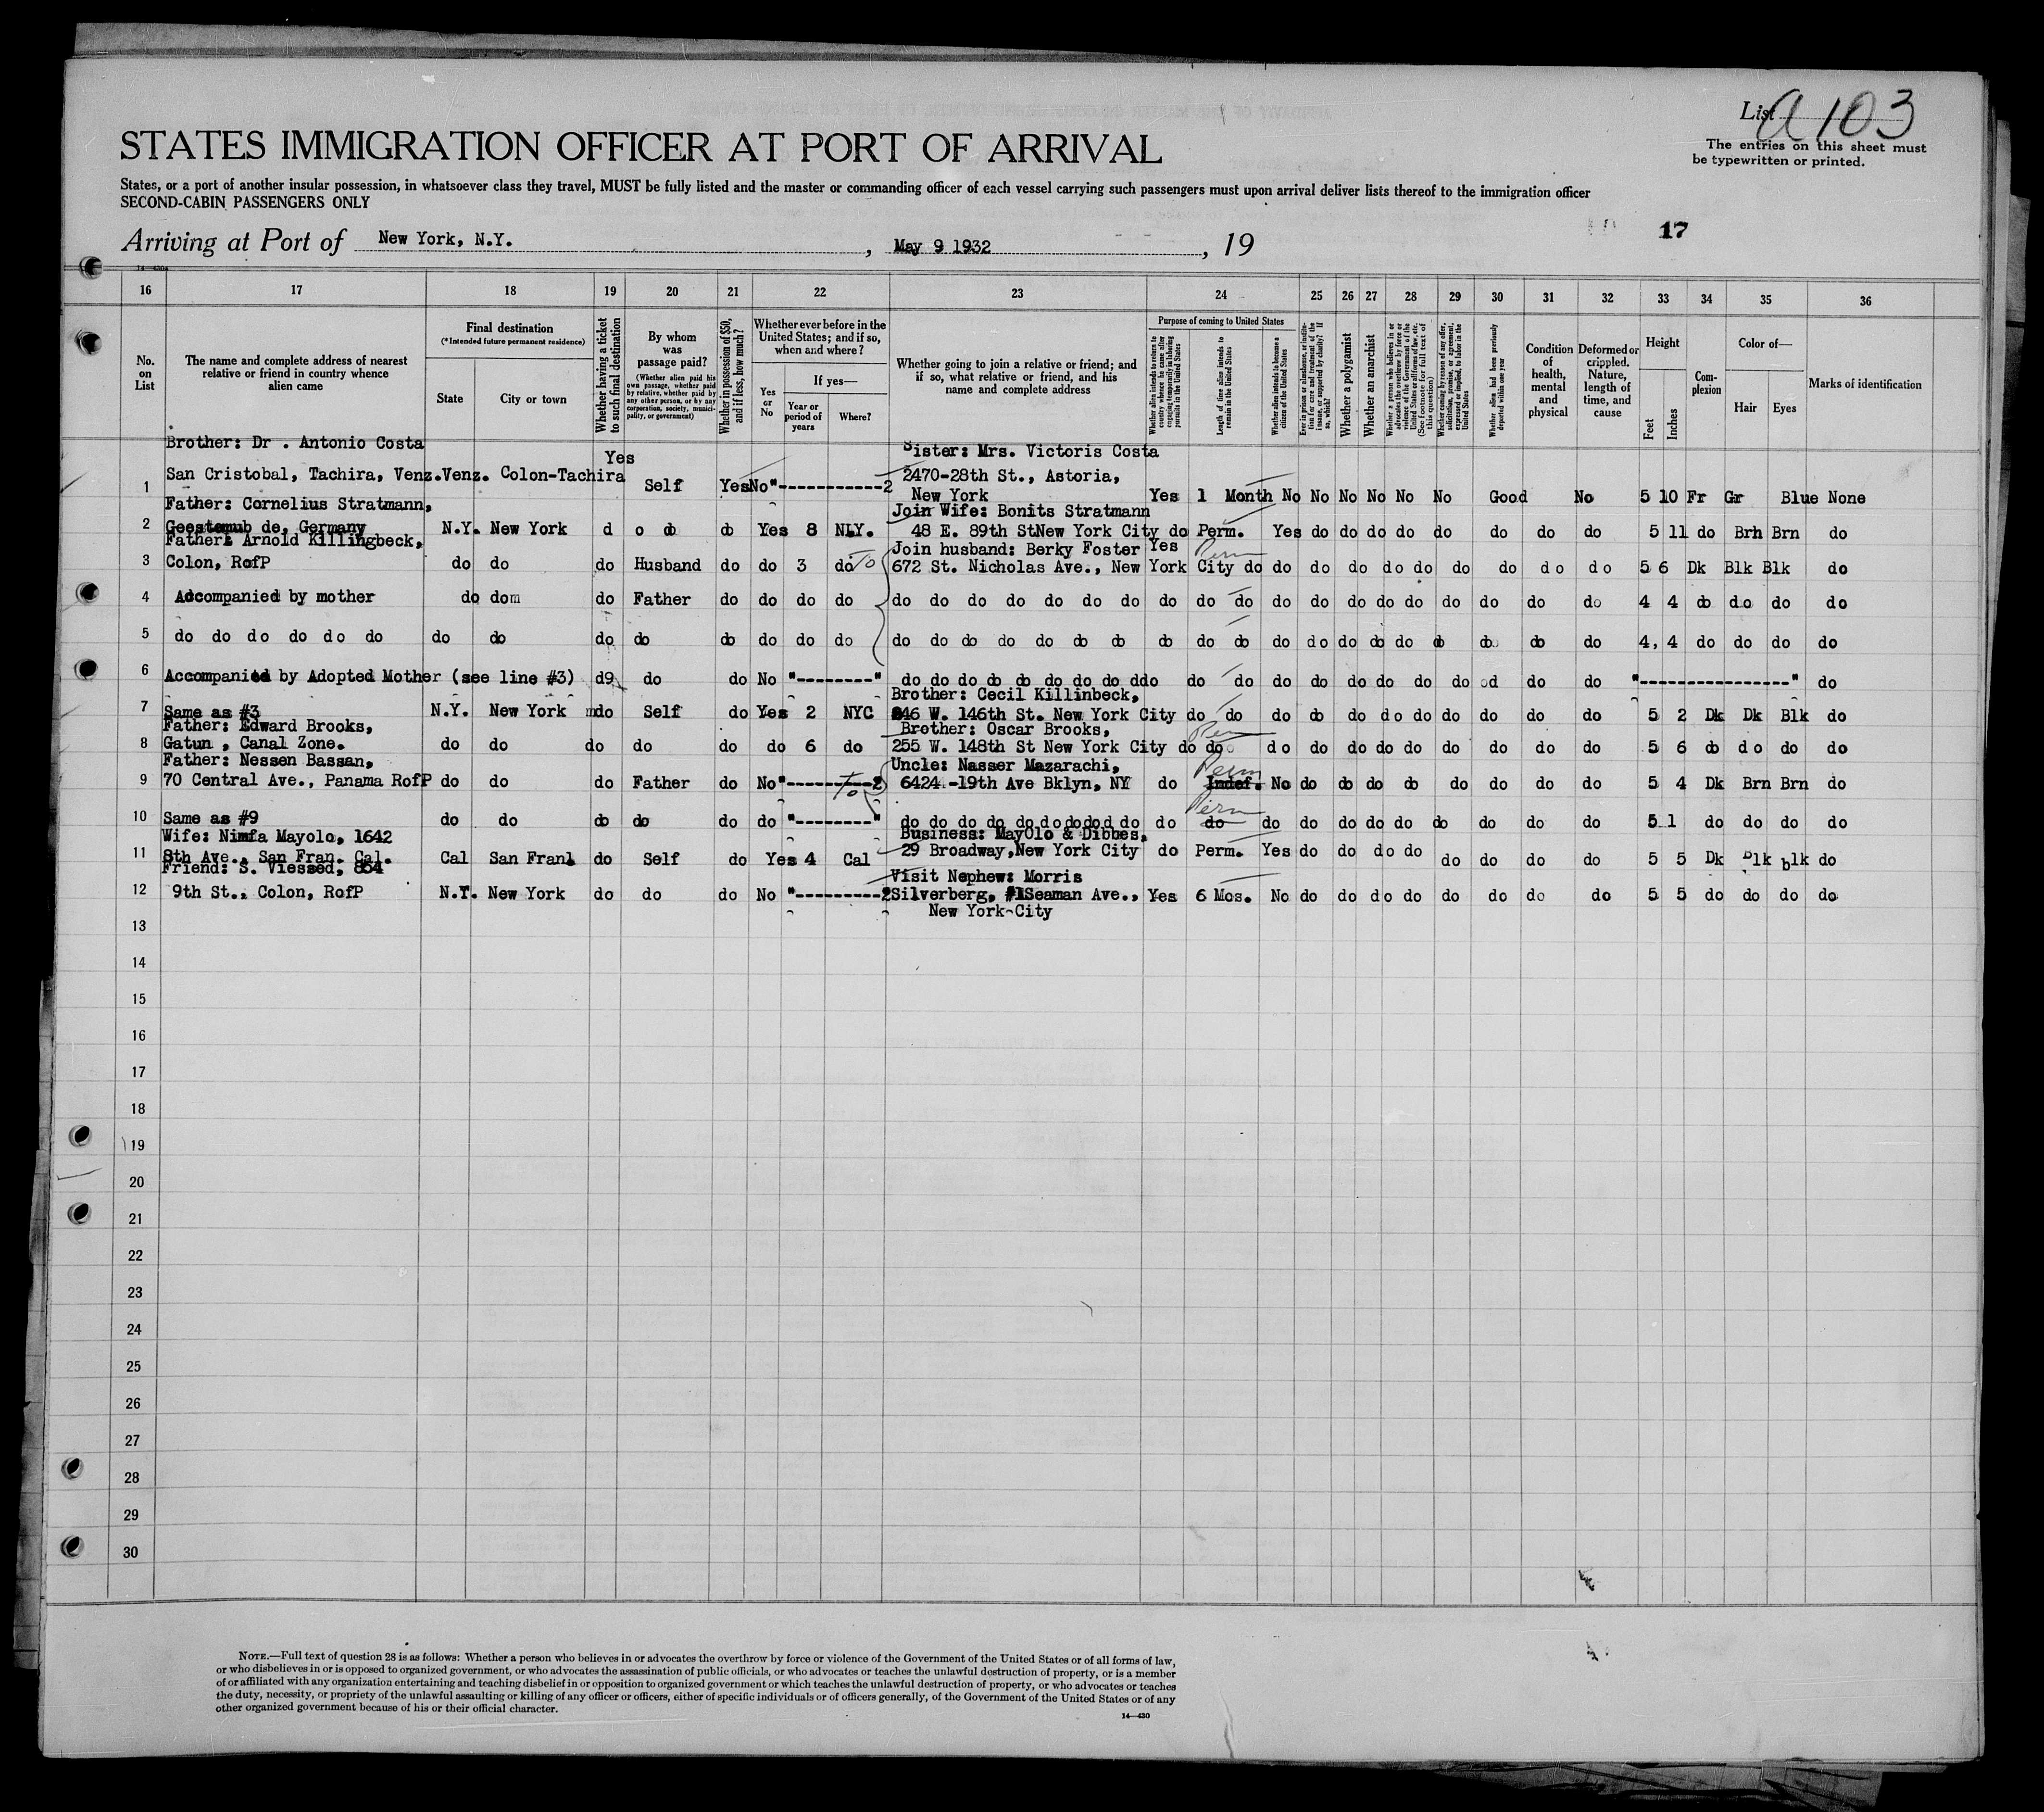 List a 103
The entries on this sheet must
be typewritten or printed.
STATES IMMIGRATION OFFICER AT PORT OF ARRIVAL
States, or a port of another insular possession, in whatsoever class they travel, MUST be fully listed and the master or commanding officer of each vessel carrying such passengers must upon arrival deliver lists thereof to the immigration officer
SECOND-CABIN PASSENGERS ONLY
17
Arriving at Port of New York, N.Y. , May 9 1932 , 19
16 17 18 19 20 21 22 23 24 25 26 27 28 29 30 31 32 33 34 35 36
No. on List
The name and complete address of nearest relative or friend in country whence alien came
Final destination
(*Intended future permanent residence)
State
City or town
Whether having a ticket to such final destination
By whom was passage paid?
(Whether alien paid his own passage, whether paid by relative, whether paid by any other person, or by any corporation, society, municipality, or government)
Whether in possession of $50, and if less, how much?
Whether ever before in the United States; and if so, when and where?
Yes or No
If yes—
Year or period of years
Where?
Whether going to join a relative or friend; and if so, what relative or friend, and his name and complete address
Purpose of coming to United States
Whether alien intends to return to country whence he came after engaging temporarily in laboring pursuits in the United States
Length of time alien intends to remain in the United States
Whether alien intends to become a citizen of the United States
Ever in prison or almshouse, or institution for care and treatment of the insane, or supported by charity? If so, which?
Whether a polygamist
Whether an anarchist
Whether a person who believes in or advocates the overthrow by force or violence of the Government of the United States or all forms of law, etc. (See footnote for full text of this question)
Whether coming by reason of any offer, solicitation, promise, or agreement, expressed or implied, to labor in the United States
Whether alien had been previously deported within one year
Condition of health, mental and physical
Deformed or crippled. Nature, length of time, and cause
Height
Feet
Inches
Complexion
Color of—
Hair
Eyes
Marks of identification
Brother: Dr . Antonio Costa Sister: Mrs. Victoris Costa
Yes
1 San Cristobal, Tachira, Venz. Venz. Colon-Tachira Self Yes No "-----------2 2470-28th St., Astoria,
New York Yes 1 Month No No No No No No Good No 5 10 Fr Gr Blue None
Father: Cornelius Stratmann, Join Wife: Bonits Stratmann
2 Germany N.Y. New York d o do do Yes 8 N.Y. 48 E. 89th St New York City do Perm. Yes do do do do do do do do 5 11 do Brh Brn do
Father: Arnold Killingbeck, Join husband: Berky Foster Yes Perm
3 Colon, RofP do do do Husband do do 3 do To 672 St. Nicholas Ave., New York City do do do do do do do do do do 5 6 Dk Blk Blk do
4 Accompanied by mother do dom do Father do do do do do do do do do do do do do do do do do do do do do do do 4 4 do do do do
5 do do do do do do do do do do do do do do do do do do do do do do do do do do do do do do do do do 4, 4 do do do do
6 Accompanied by Adopted Mother (see line #3) d9 do do No "--------" do do do do do do do do ddo do do do do do do do do od do do "----------------" do
Brother: Cecil Killinbeck,
7 Same as #3 N.Y. New York mdo Self do Yes 2 NYC 46 W. 146th St. New York City do do do do do do do do do do do 5 2 Dk Dk Blk do
Father: Edward Brooks, Brother: Oscar Brooks, Perm
8 Gatun , Canal Zone. do do do do do do 6 do 255 W. 148th St New York City do do do do do do do do do do do 5 6 do do do do
Father: Nessen Bassan, Uncle: Nasser Mazarachi, Perm
9 70 Central Ave., Panama RofP do do do Father do No "---------2 To 6424 -19th Ave Bklyn, NY do Indef. No do do do do do do do do 5 4 Dk Brn Brn do
Perm
10 Same as #9 do do do do do do "---------" do do do do do do do do do do do do do do do do do do do do 5 1 do do do do
Wife: Nimfa Mayolo, 1642 Business: MayOlo & Dibbes,
11 8th Ave., San Fran. Cal. Cal San Fran. do Self do Yes 4 Cal 29 Broadway, New York City do Perm. Yes do do do do do do do do 5 5 Dk Blk blk do
Friend: S. Viessed, 864 Visit Nephew: Morris
12 9th St., Colon, RofP N.Y. New York do do do No "----------2 Silverberg, #1 Seaman Ave., Yes 6 Mos. No do do do do do do do do 5 5 do do do do
New York City
13
14
15
16
17
18
19
20
21
22
23
24
25
26
27
28
29
30
NOTE.—Full text of question 28 is as follows: Whether a person who believes in or advocates the overthrow by force or violence of the Government of the United States or of all forms of law,
or who disbelieves in or is opposed to organized government, or who advocates the assassination of public officials, or who advocates or teaches the unlawful destruction of property, or is a member
of or affiliated with any organization entertaining and teaching disbelief in or opposition to organized government or which teaches the unlawful destruction of property, or who advocates or teaches
the duty, necessity, or propriety of the unlawful assaulting or killing of any officer or officers, either of specific individuals or of officers generally, of the Government of the United States or of any
other organized government because of his or their official character.
14—430